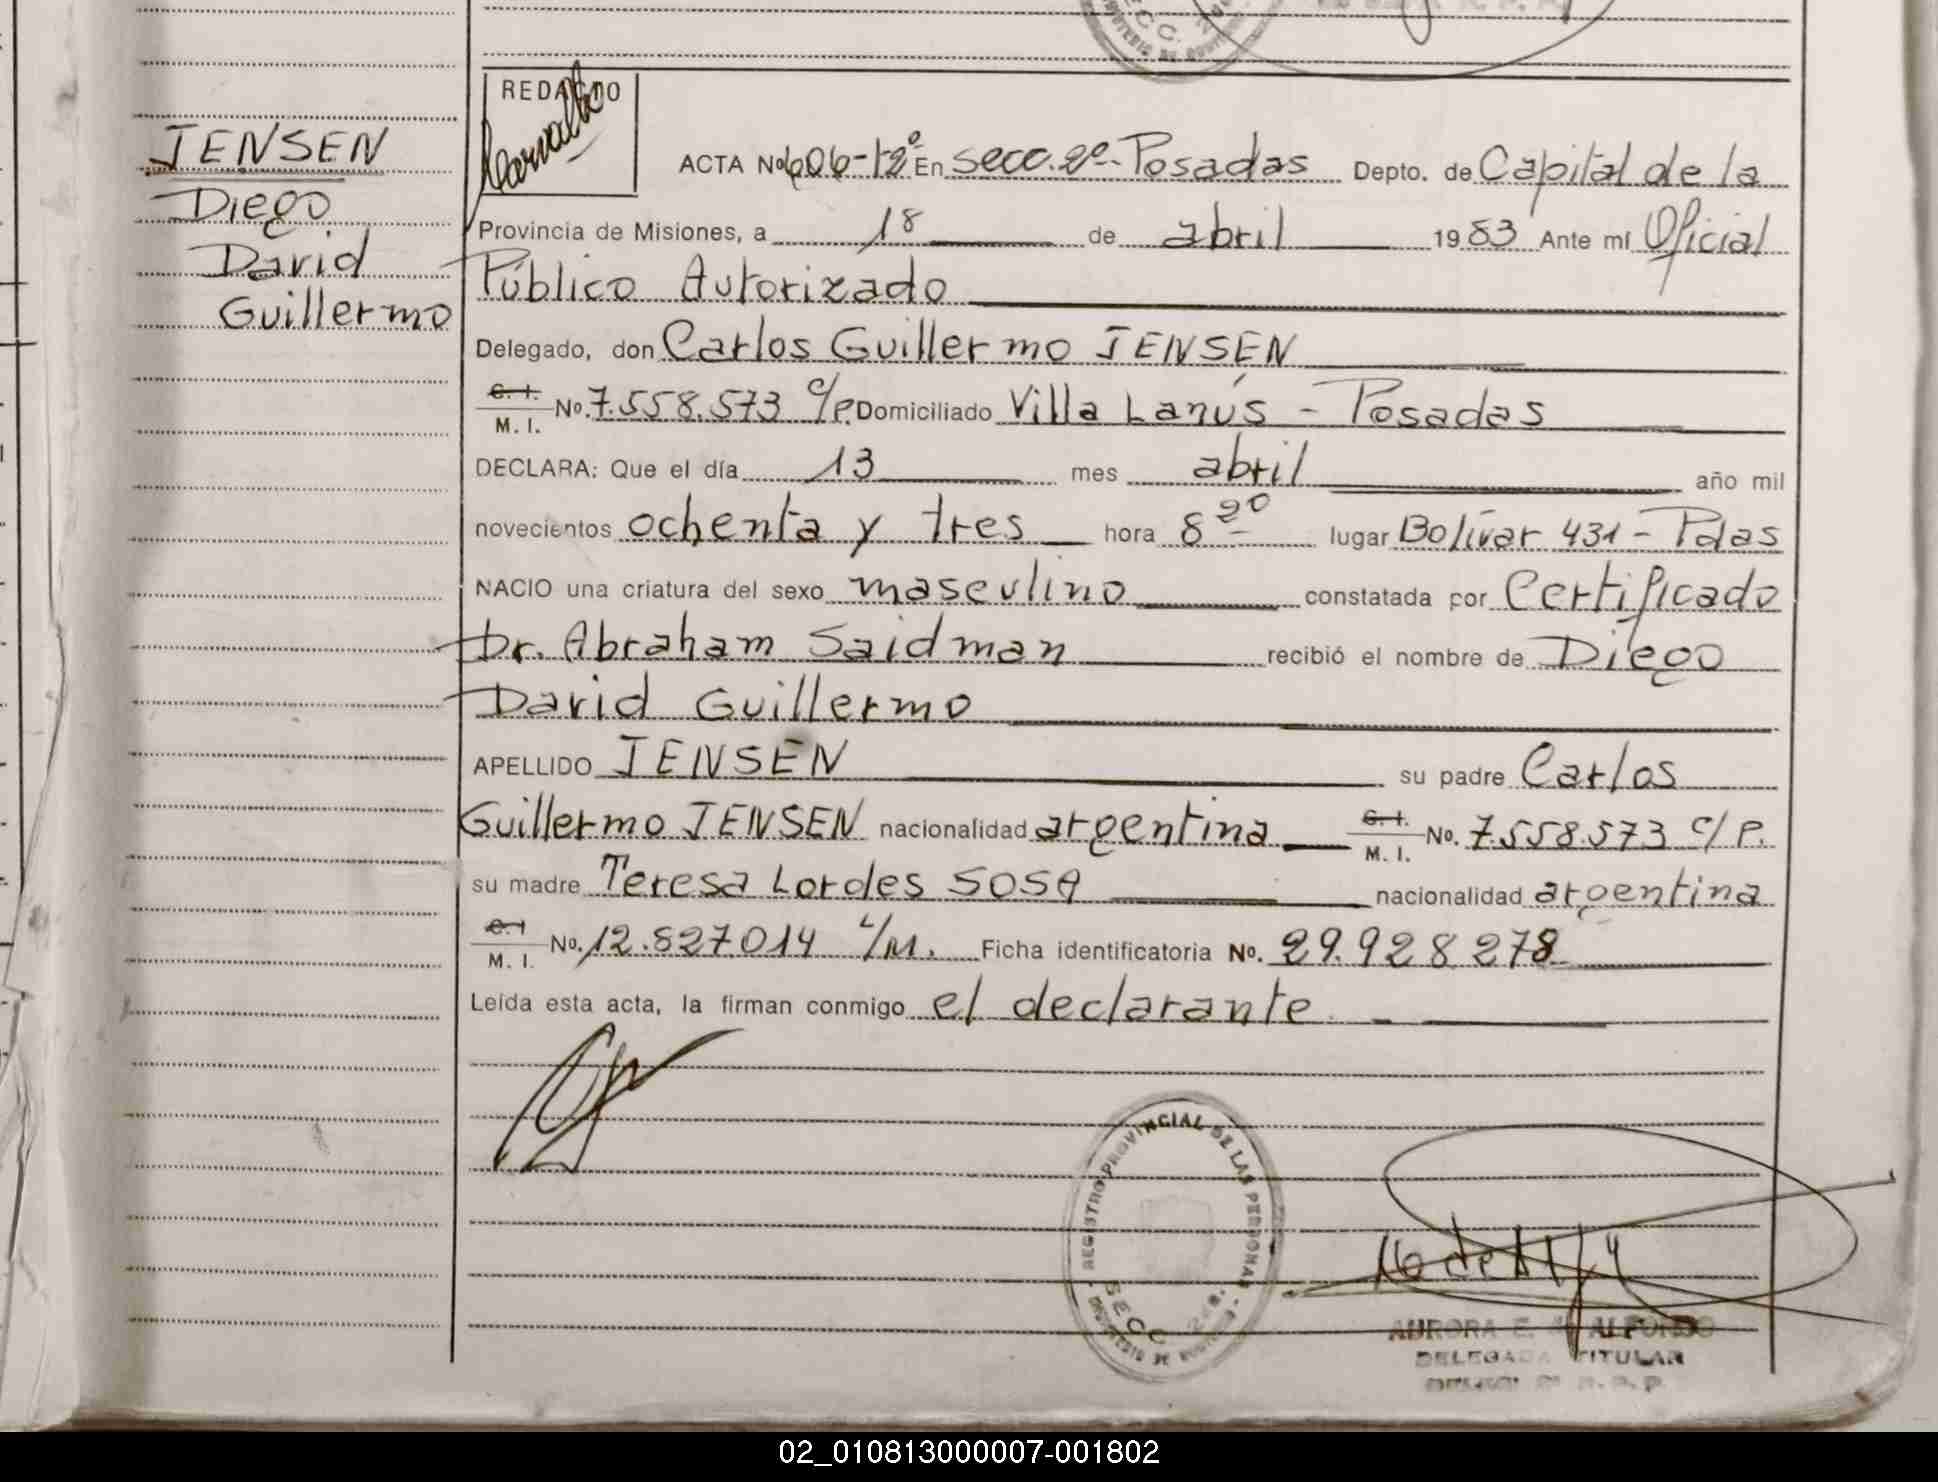 JENSEN
Diego
David
Guillermo
REDACTO
Carvalho
ACTA No 606-t2º En secc. 2º-Posadas Depto. de Capital de la
Provincia de Misiones, a 18 de abril 1983 Ante mi Oficial
Público Autorizado
Delegado, don Carlos Guillermo JENSEN
C. I. M. I. No. 7.558.573 c/P. Domiciliado Villa Lanús - Posadas
DECLARA: Que el día 13 mes abril año mil
novecientos ochenta y tres hora 8 20 lugar Bolívar 431 - Pdas
NACIO una criatura del sexo masculino constatada por Certificado
Dr. Abraham Saidman recibió el nombre de Diego
David Guillermo
APELLIDO JENSEN su padre Carlos
Guillermo JENSEN nacionalidad argentina C. I. M. I. No. 7.558.573 c/P.
su madre Teresa Lordes SOSA nacionalidad argentina
C. I M. I. No. 12.827.014 c/M. Ficha identificatoria No. 29.928.278
Leída esta acta, la firman conmigo el declarante.
REGISTRO PROVINCIAL DE LAS PERSONAS
SECC
AURORA E. ALFONSO
DELEGADA TITULAR
02_010813000007-001802